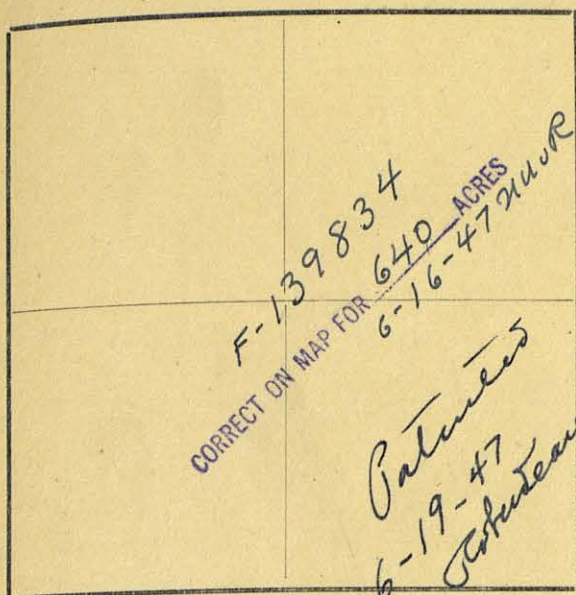 F-139834
CORRECT ON MAP FOR 640 ACRES
6-16-47
Patented
6-19-47